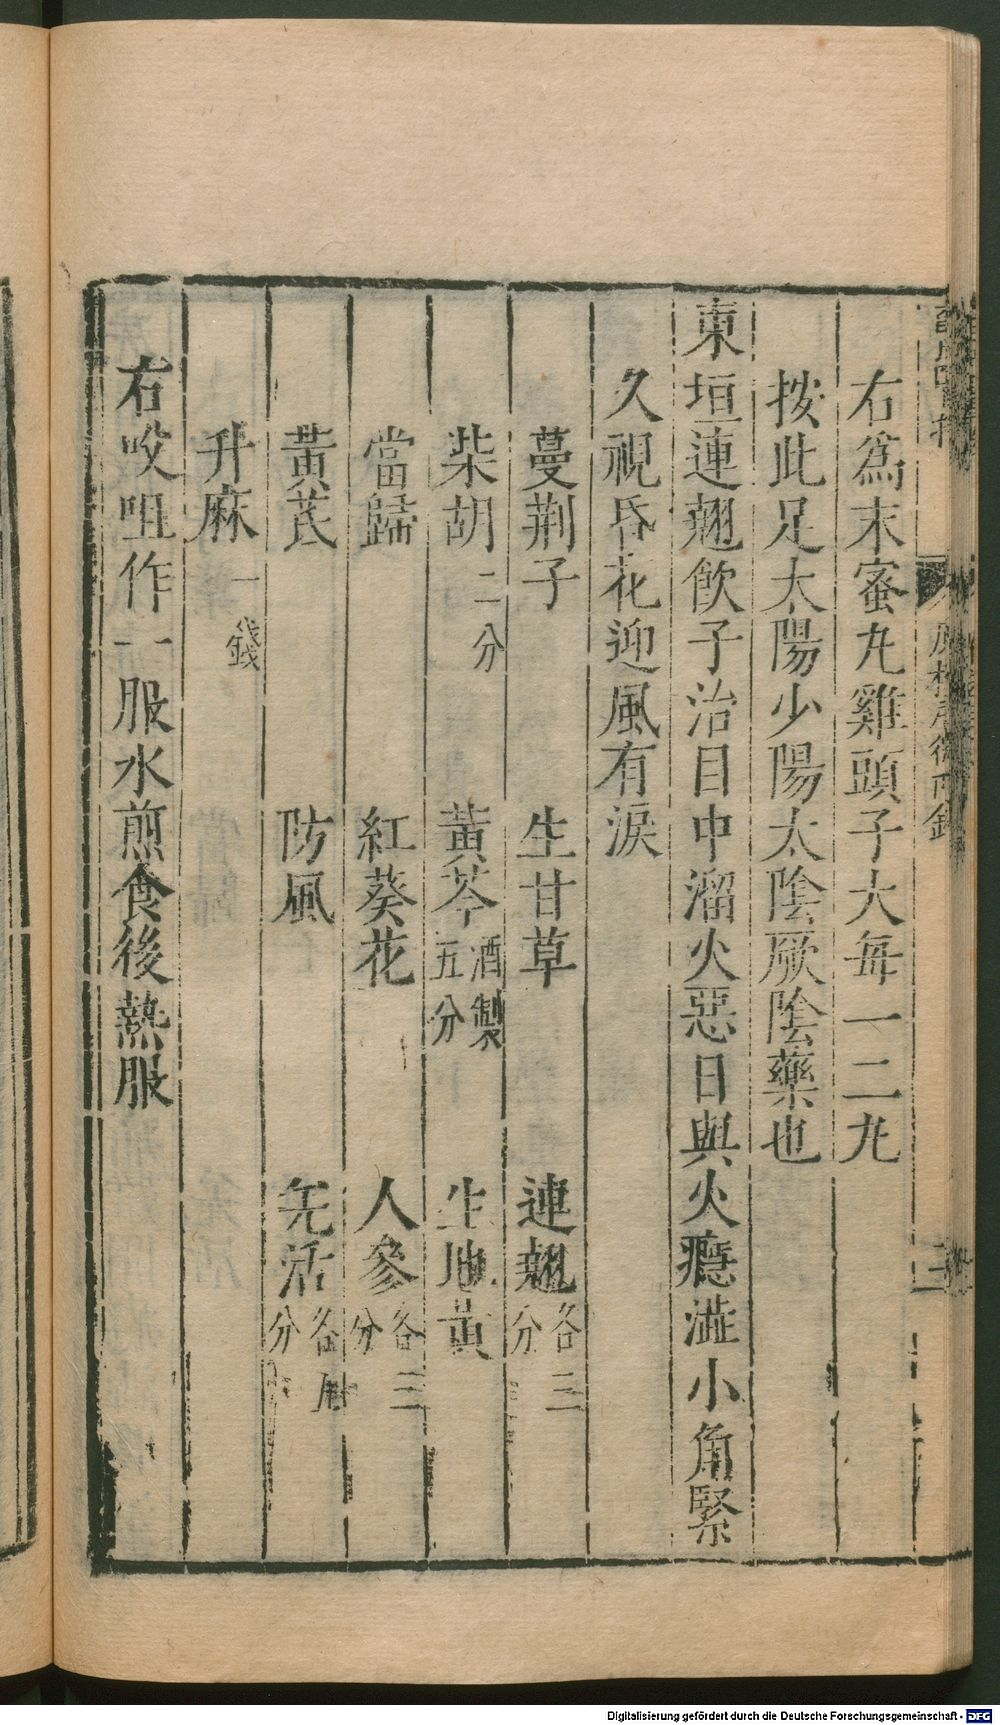 右爲末蜜九雞頭子大每一二九
按此足太陽少陽太陰厥陰藥也
東垣連翹飲子治目中溜火惡日與火癮澁小角緊
久視昏花迎風有淚
蔓荆子 生甘草 連翹各三分
柴胡二分 黃芩酒製五分 生地黃
當歸 紅葵花 人參各三分
黃芪 防風 羌活各 分
升麻一錢
右㕮咀作一服水煎食後熱服
Digitalisierung gefördert durch die Deutsche Forschungsgemeinschaft - DFG